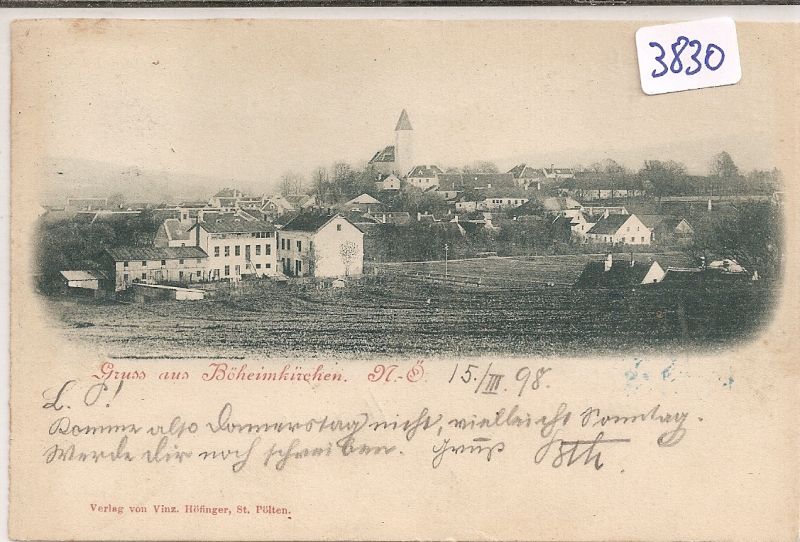 3830
Gruss aus Böheimkirchen. N.-Ö. 15./III. 98.
L. P!
Komme also Donnerstag nicht, vielleicht Sonntag.
Werde dir noch schreiben. Gruß
Verlag von Vinz. Höfinger, St. Pölten.